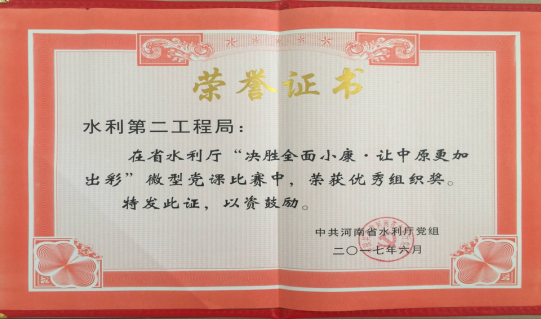 荣誉证书
水利第二工程局：
在省水利厅“决胜全面小康·让中原更加
出彩”微型党课比赛中，荣获优秀组织奖。
特发此证，以资鼓励。
中共河南省水利厅党组
二〇一七年六月